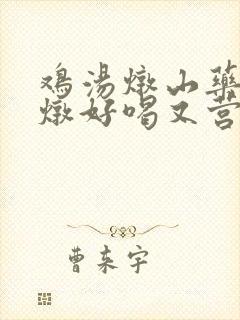 鸡汤燉山药
燉好喝又营
曹来宇